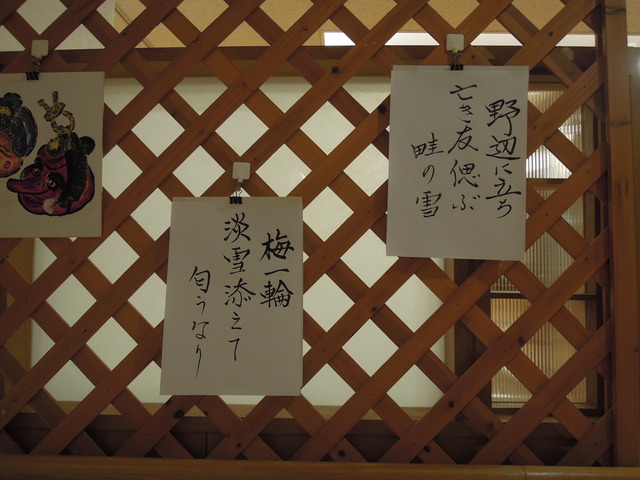 野辺に立ち
亡き友偲ぶ
畦の雪
梅一輪
淡雪添えて
匂うなり